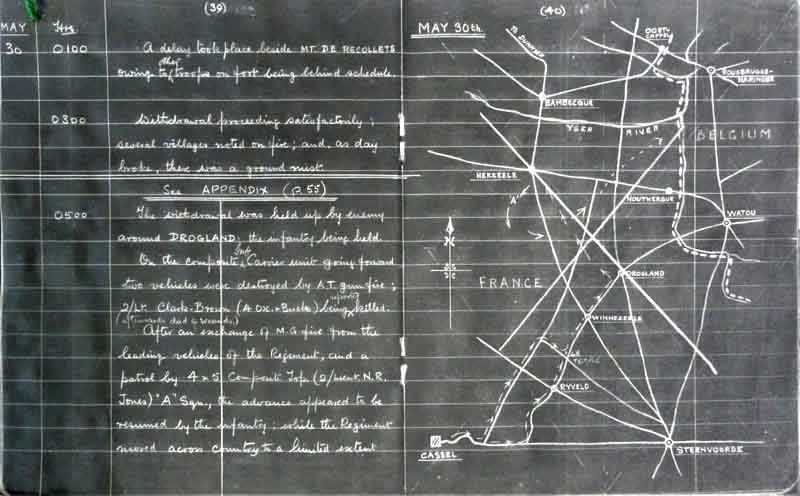 (39)
MAY Hrs
30 0100 A delay took place beside MT. DE RECOLLETS
owing to other troops on foot being behind schedule.
0300 Withdrawal proceeding satisfactorily;
several villages noted on fire; and, as day
broke, there was a ground mist.
See APPENDIX (P.55)
0500 The withdrawal was held up by enemy
around DROGLAND: the infantry being held.
On the composite Carrier unit going forward
two vehicles were destroyed by A.T. gun fire;
2/Lt. Clark-Brown (4 Ox. & Bucks) being reported killed.
(afterwards died of wounds)
After an exchange of M.G. fire from the
leading vehicles of the Regiment, and a
patrol by 4 & 5 Composite Trps (2/Lieut. N.R.
Jones) "A" Sqn., the advance appeared to be
resumed by the infantry: while the Regiment
moved across country to a limited extent
(40)
MAY 30th.
TO DUNKIRK
OOST-
CAPPEL
ROUSBRUGGE-
HARINGER
BAMBECQUE
YSER RIVER
BELGIUM
?
HERZEELE
HOUTKERQUE
'A'
WATOU
FRANCE
DROGLAND
WINNEZEELE
LE
TEMPLE
RYVELD
CASSEL
STEENVOORDE